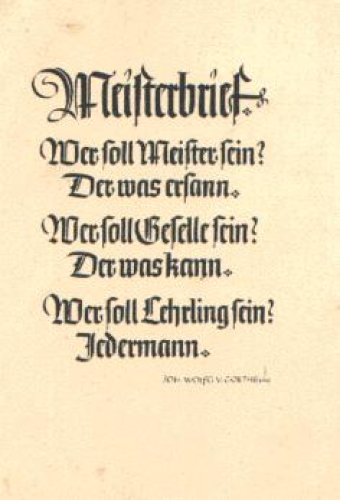 Meisterbrief
Wer soll Meister sein?
Der was ersann.
Wer soll Geselle sein?
Der was kann.
Wer soll Lehrling sein?
Jedermann.
JOH. WOLFG. V. GOETHE